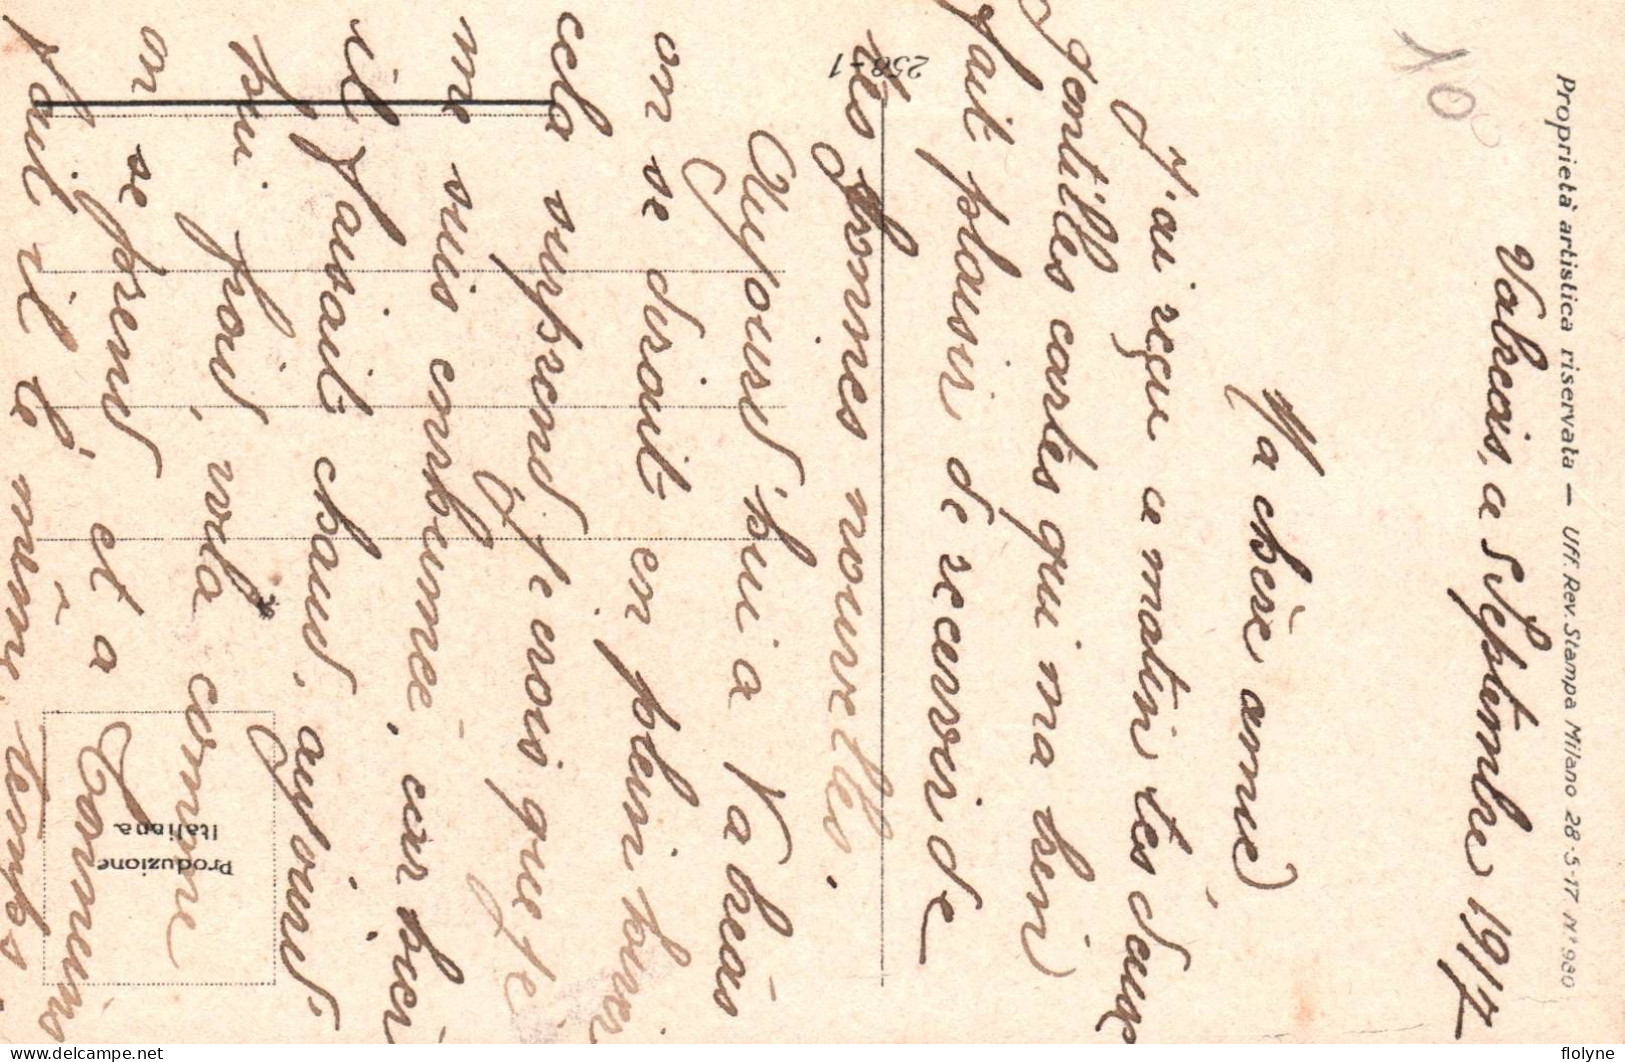 Valréas, ce Septembre 1917
Ma chère amie,
J'ai reçu ce matin tes deux
gentilles cartes qui m'a bien
fait plaisir de recevoir de
tes bonnes nouvelles.
Aujourd'hui a Valréas
on se dirait en plein hiver
cela surprend je crois que je
me suis enrhumée, car hier
il faisait chaud, aujourd'
hui froid, voila comme
on se prend et a
fait il le même temps
Proprietà artistica riservata — Uff. Rev. Stampa Milano 28-5-17 N° 980
258-1
Produzione
Italiana.
10
© Delcampe.net
flolyne